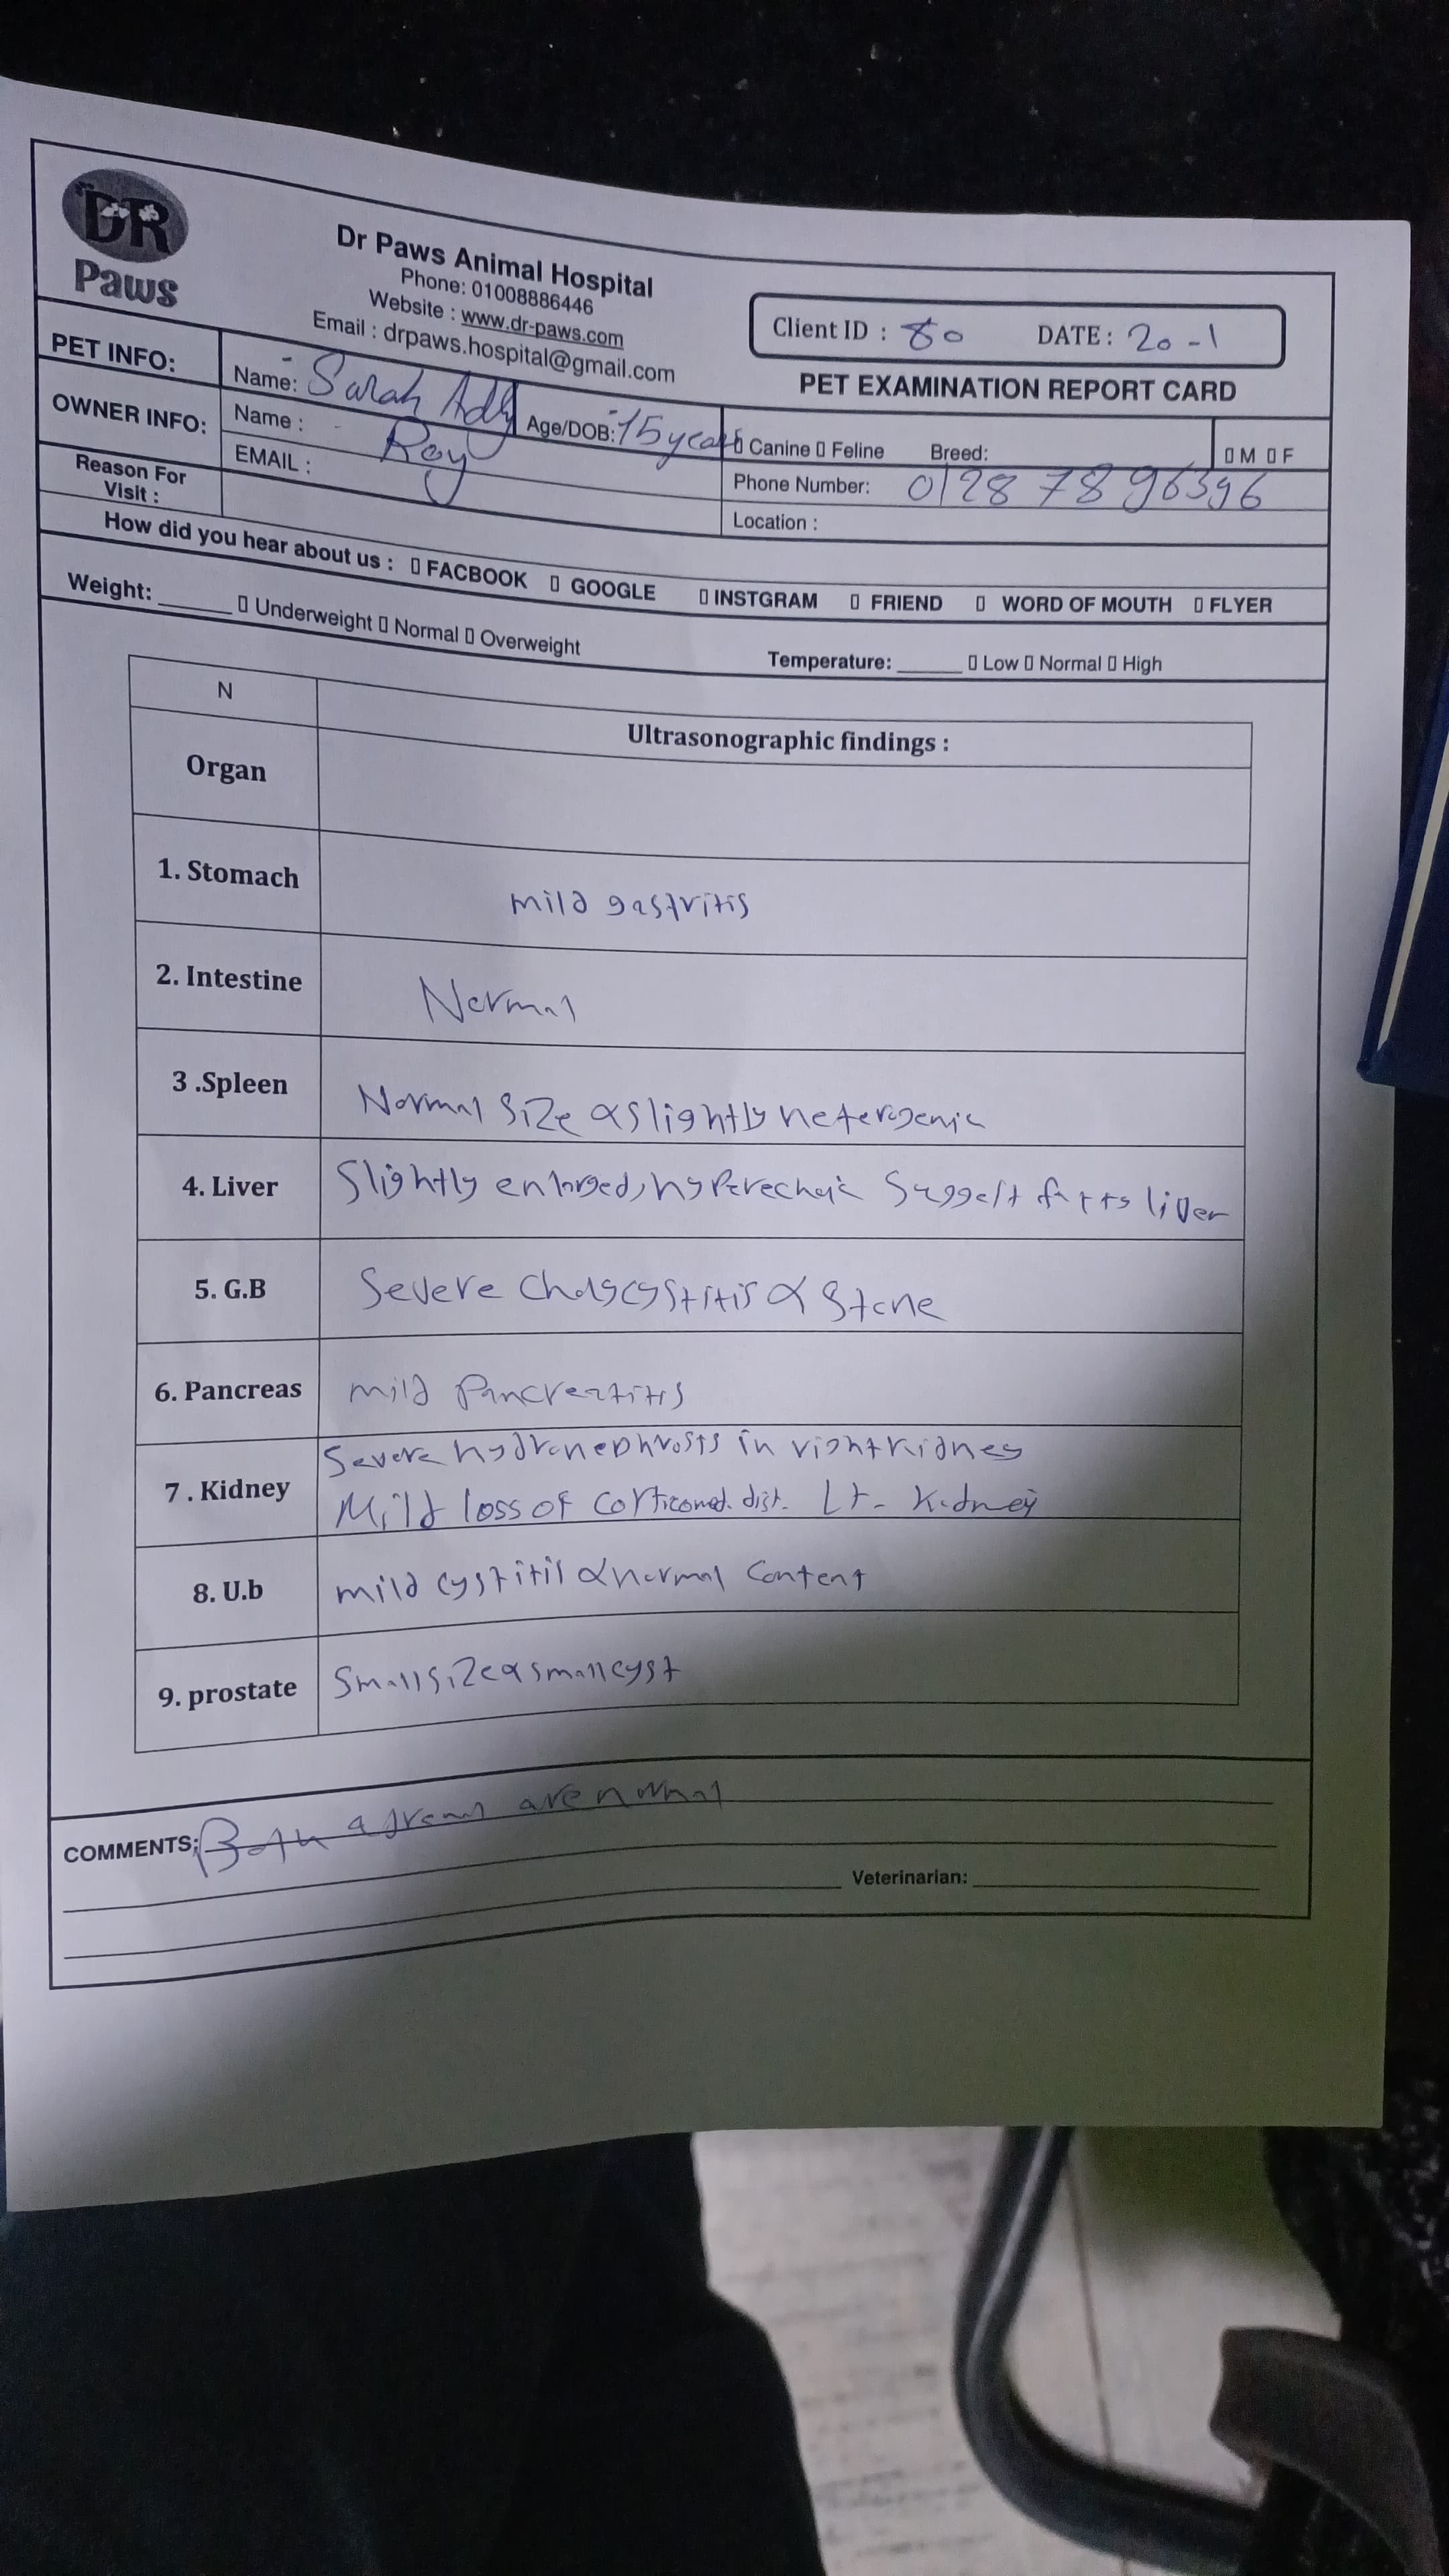 DR
Paws
Dr Paws Animal Hospital
Phone: 01008886446
Website : www.dr-paws.com
Email : drpaws.hospital@gmail.com
Client ID : 80 DATE : 20-1
PET EXAMINATION REPORT CARD
PET INFO: Name: Sarah Adly Age/DOB: 15 years Canine Feline Breed: M F
OWNER INFO: Name : Roy Phone Number: 01287896396
EMAIL : Location :
Reason For Visit :
How did you hear about us : FACBOOK GOOGLE INSTGRAM FRIEND WORD OF MOUTH FLYER
Weight: ______ Underweight Normal Overweight Temperature: ______ Low Normal High
N Ultrasonographic findings :
Organ
1. Stomach mild gastritis
2. Intestine Normal
3 .Spleen Normal size & slightly heterogenic
4. Liver Slightly enlarged, hyperechoic suggest fatty liver
5. G.B Severe & stone
6. Pancreas mild pancreatitis
7 . Kidney Severe hydronephrosis in right kidney
Mild loss of corticomed. dist. Lt- Kidney
8. U.b mild cystitis & normal content
9. prostate Small size & small cyst
COMMENTS: Both are normal
Veterinarian: ______